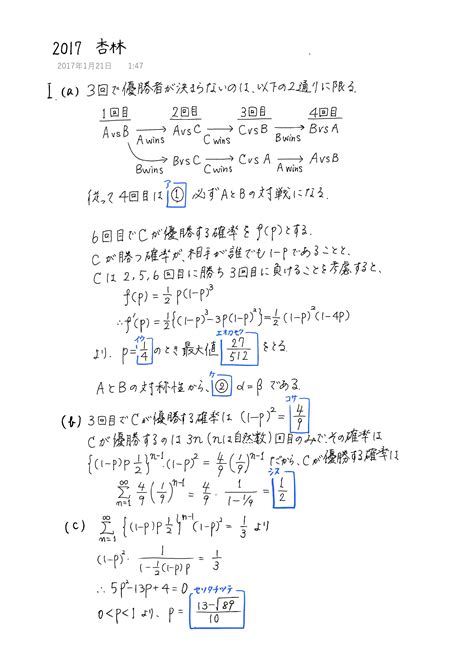 2017 杏林
2017年1月21日 1:47
I. (a) 3回で優勝者が決まらないのは、以下の2通りに限る.
1回目 2回目 3回目 4回目
AvsB → A wins AvsC → C wins CvsB → B wins BvsA
B wins BvsC → C wins CvsA → A wins AvsB
従って4回目は ア ① 必ずAとBの対戦になる.
6回目でCが優勝する確率をf(p)とする.
Cが勝つ確率が、相手が誰でも1-pであることと、
Cは2,5,6回目に勝ち3回目に負けることを考慮すると、
f(p) = 1/2 p(1-p)^3
∴ f'(p) = 1/2{(1-p)^3-3p(1-p)^2} = 1/2 (1-p)^2(1-4p)
より、p = イウ 1/4 のとき最大値 エオカキク 27/512 をとる.
AとBの対称性から、ケ ② α=β である.
(b) 3回目でCが優勝する確率は (1-p)^2 = コサ 4/9
Cが優勝するのは3n(nは自然数)回目のみで、その確率は
{(1-p)p 1/2}^{n-1}・(1-p)^2 = 4/9 (1/9)^{n-1} だから、Cが優勝する確率は
∞Σn=1 4/9 (1/9)^{n-1} = 4/9・1/(1-1/9) = シス 1/2
(c) ∞Σn=1 {(1-p)p 1/2}^{n-1}(1-p)^2 = 1/3 より
(1-p)^2・1/(1-1/2(1-p)p) = 1/3
∴ 5p^2-13p+4=0
0<p<1 より、p = セソタチツテ (13-√89)/10